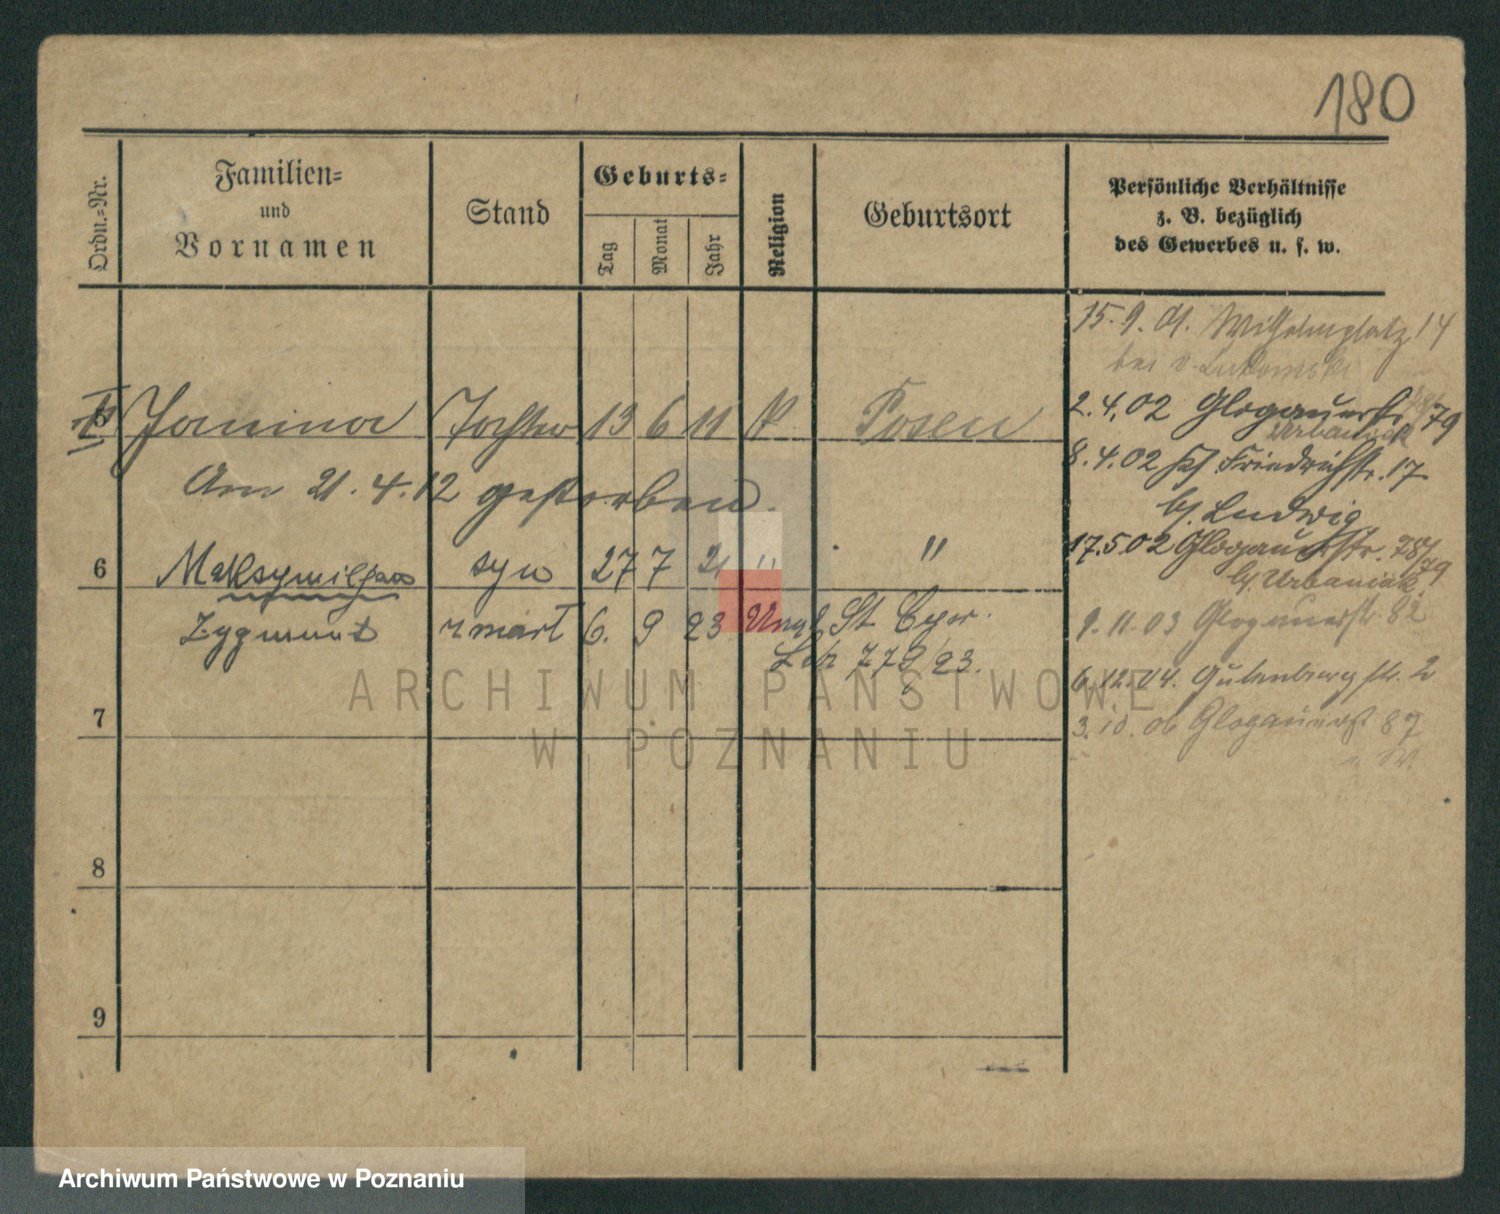 180
Ordn.=Nr.
Familien=
und
Vornamen
Stand
Geburts=
Tag
Monat
Jahr
Religion
Geburtsort
Persönliche Verhältnisse
z. B. bezüglich
des Gewerbes u. s. w.
15. 9. 01. Wilhelmplatz 14
bei v. Lukomski
Janina Tochter 13 6 11 K Posen
2.4.02 Glogauerstr. 79
Urbaniak
8.4.02 Friedrichstr. 17
Am 21.4.12 gestorben.
bj. Ludwig
17.5.02 Glogauerstr. 78/79
bj. Urbaniak
6 Maksymiljan syn 27 7 21 " "
Zygmunt zmarł 6. 9 23 St. Cyw.
9.11.03 Glogauerstr. 82
779/23.
6.12.04. Gutenbergstr. 2
7
3.10.06 Glogauerstr 89
8
9
ARCHIWUM PAŃSTWOWE
W POZNANIU
Archiwum Państwowe w Poznaniu